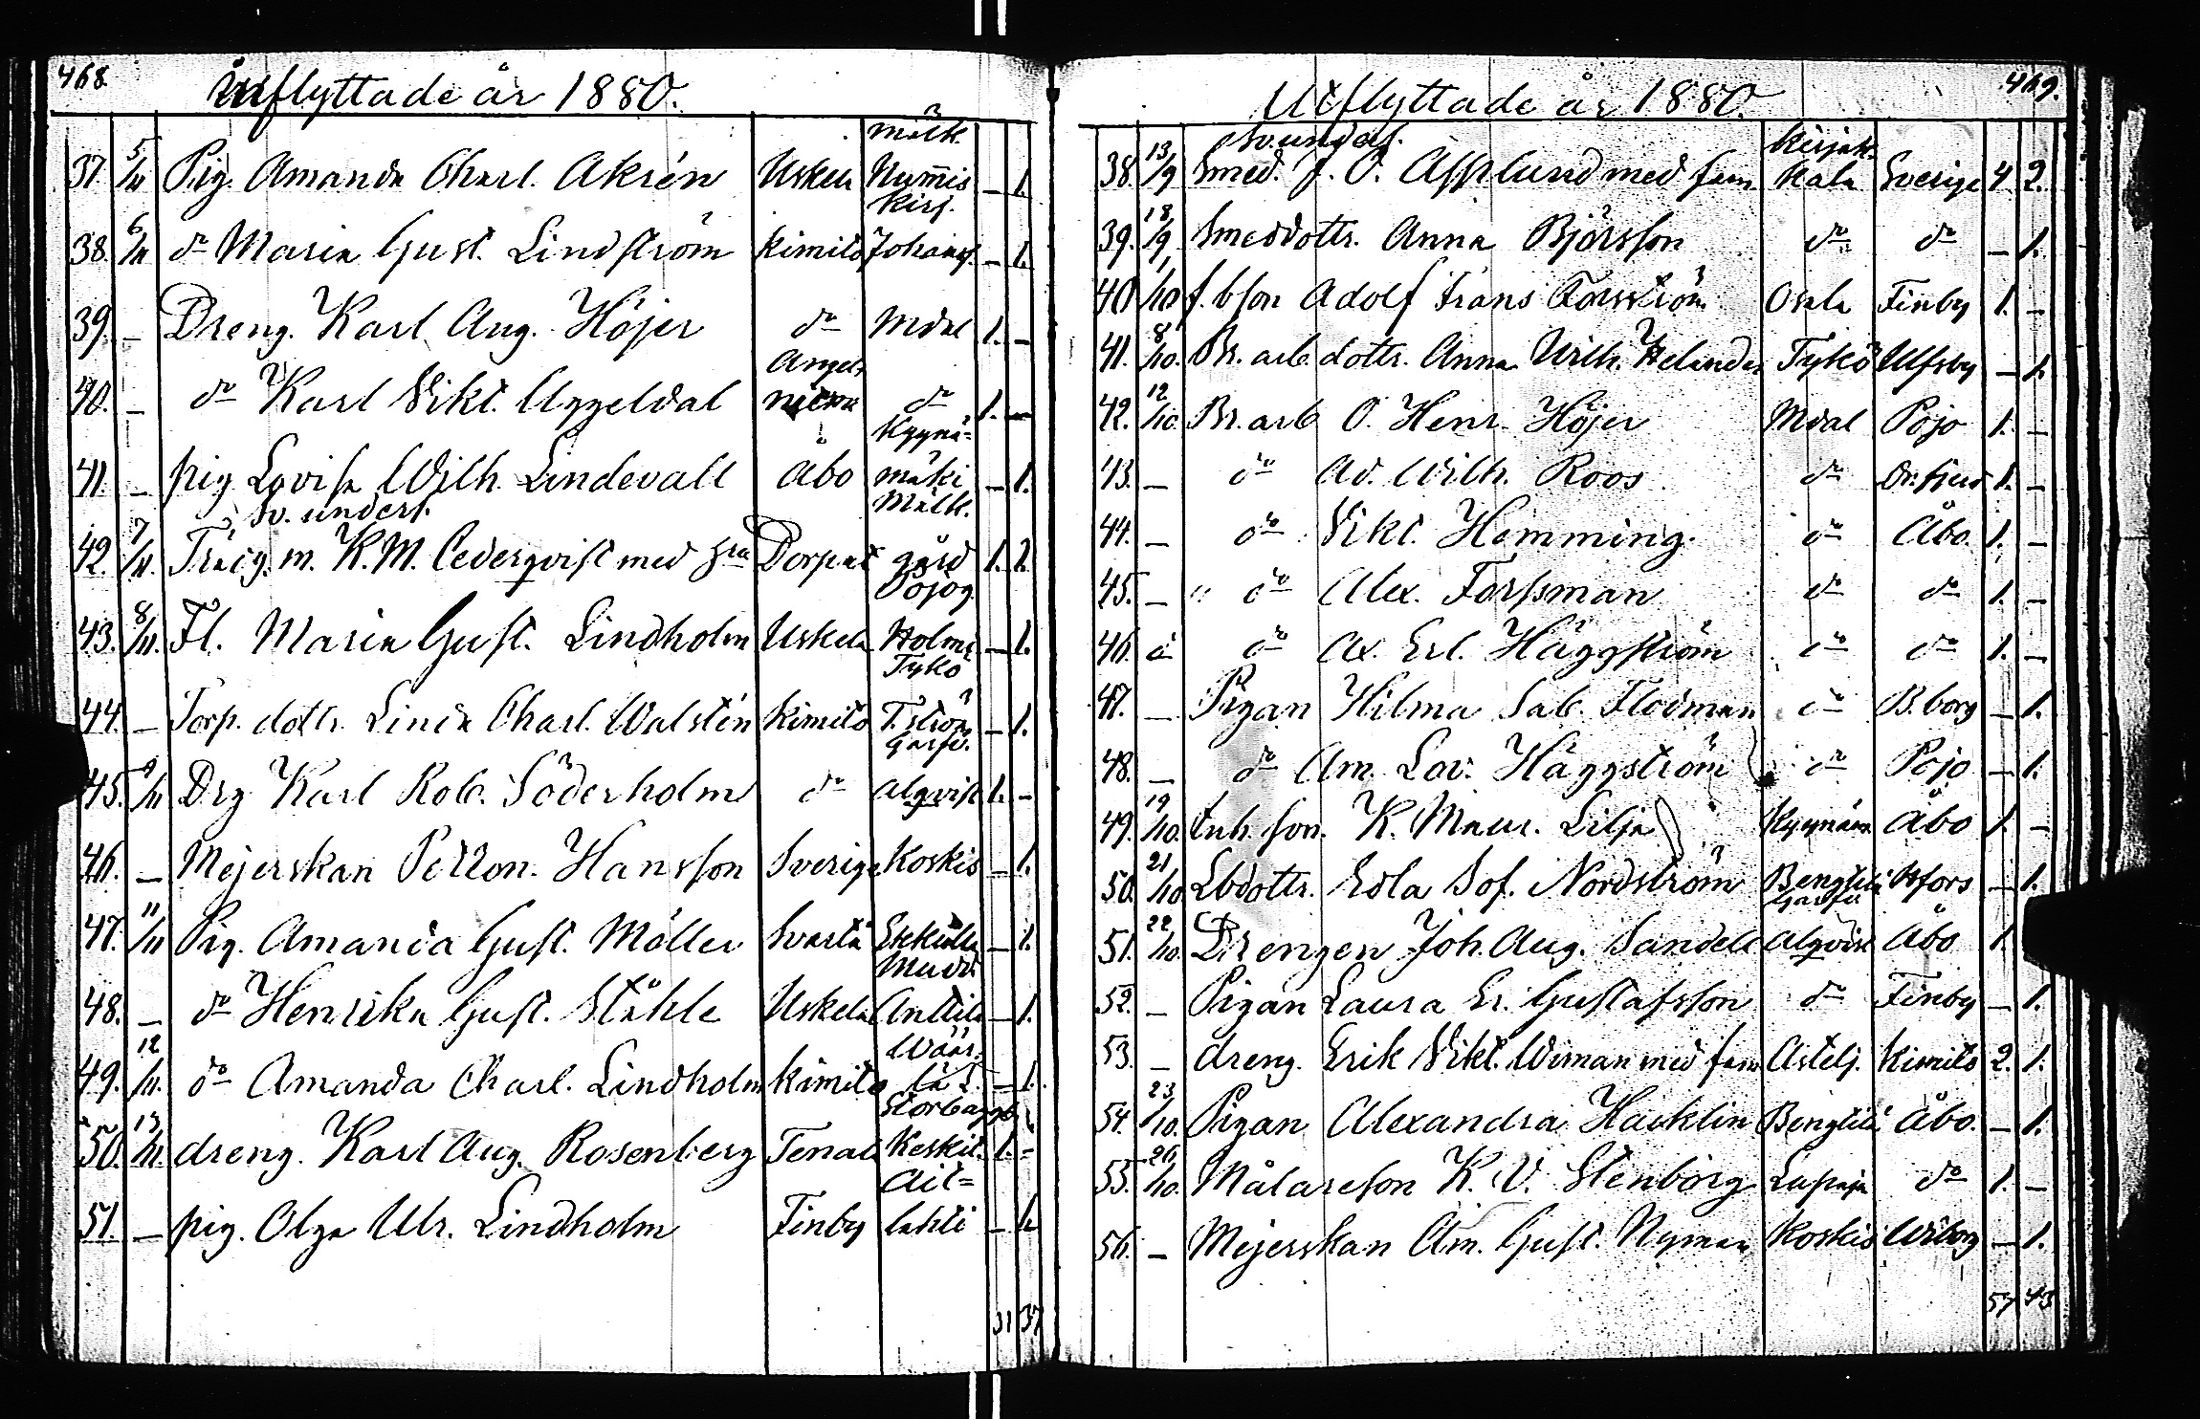 468.
Inflyttade år 1880.
37. 5/11 Pig. Amanda Charl. Akrén Uskela Nummis Mälk. — 1.
38. 6/11 do Maria Gust. Lindström Kimito Johannsf. Kirj. — 1.
39. — Dreng. Karl Aug. Höjer do Mdal 1. —
40. — do Karl Vikt. Uggeldal Angelniemi do 1. —
41. — pig Lovisa Wilh. Lindevall Åbo Kyynämäki — 1.
Sv. unders.
42. 7/11 Trädg. m. K. M. Cederqvist med hru Dorpat Mälk. gård 1. 1.
43. 8/11 Fl. Maria Gust. Lindholm Uskela Pojog. Holma — 1.
44. — Torp. dottr. Linda Charl. Walstén Kimito Tykö T. ström — 1.
45. 9/11 Drg Karl Rob. Söderholm do Garfv. Alqvist 1. —
46. — Mejerskan Petron. Hansson Sverige Koskis — 1.
47. 11/11 Pig. Amanda Gust. Möller Svartå Ekkulla — 1.
48. — do Henrika Gust. Ståhle Uskela Anttila — 1.
49. 12/11. do Amanda Charl. Lindholm Kimito — 1.
50. 13/11. dreng. Karl Aug. Rosenberg Tenala Storbagg. Keskit. 1. =
51. — pig. Olga Ulr. Lindholm Finby Ail=lahti — 1.
31 37
469.
Utflyttade år 1880.
Sv. unders.
38. 13/9 Smed. J. O. Afflund med fam Kirjakkala Sverige 4. 2.
39. 18/9. Smeddottr. Anna Björsson do do — 1.
40. 1/10 f. bson Adolf Frans Forsström Finby 1. —
41. 8/10. Br. arb dottr. Anna Wilh. Helander Tykö Ulfsby — 1.
42. 12/10. Br. arb O. Henr. Höjer Mdal Pojo 1. —
43. — do Ad. Wilh. Roos do 1. —
44. — do Vikt. Hemming. do Åbo. 1. —
45. — do Alex. Forssman do do 1. —
46. do Ax. Erl. Häggström do do 1. —
47. — Pigan Hilma Sab. Flodman do B.borg — 1.
48. — do Am. Lov. Häggström do Pojo — 1.
49. 19/10. Inh. son. K. Maur. Lilja Kyynäm. Åbo 1. —
50. 21/10 Lbdottr. Edla Sof. Nordström Bengtila Hfors — 1.
51. 22/10. Drengen Joh. Aug. Sandell Garfv. Alqvist Åbo 1.
52. — Pigan Laura Er. Gustafsson do Finby — 1.
53. — dreng. Erik Vikt. Wiman med fam Astelj. Kimito 2. 1.
54. 23/10. Pigan Alexandra Hacklin Bengtili Åbo. — 1.
55. 26/10. Målareson K. V. Stenborg Lupaja do 1. —
56. — Mejerskan Am. Gust. Nyman Koskis Wiborg — 1.
57 43